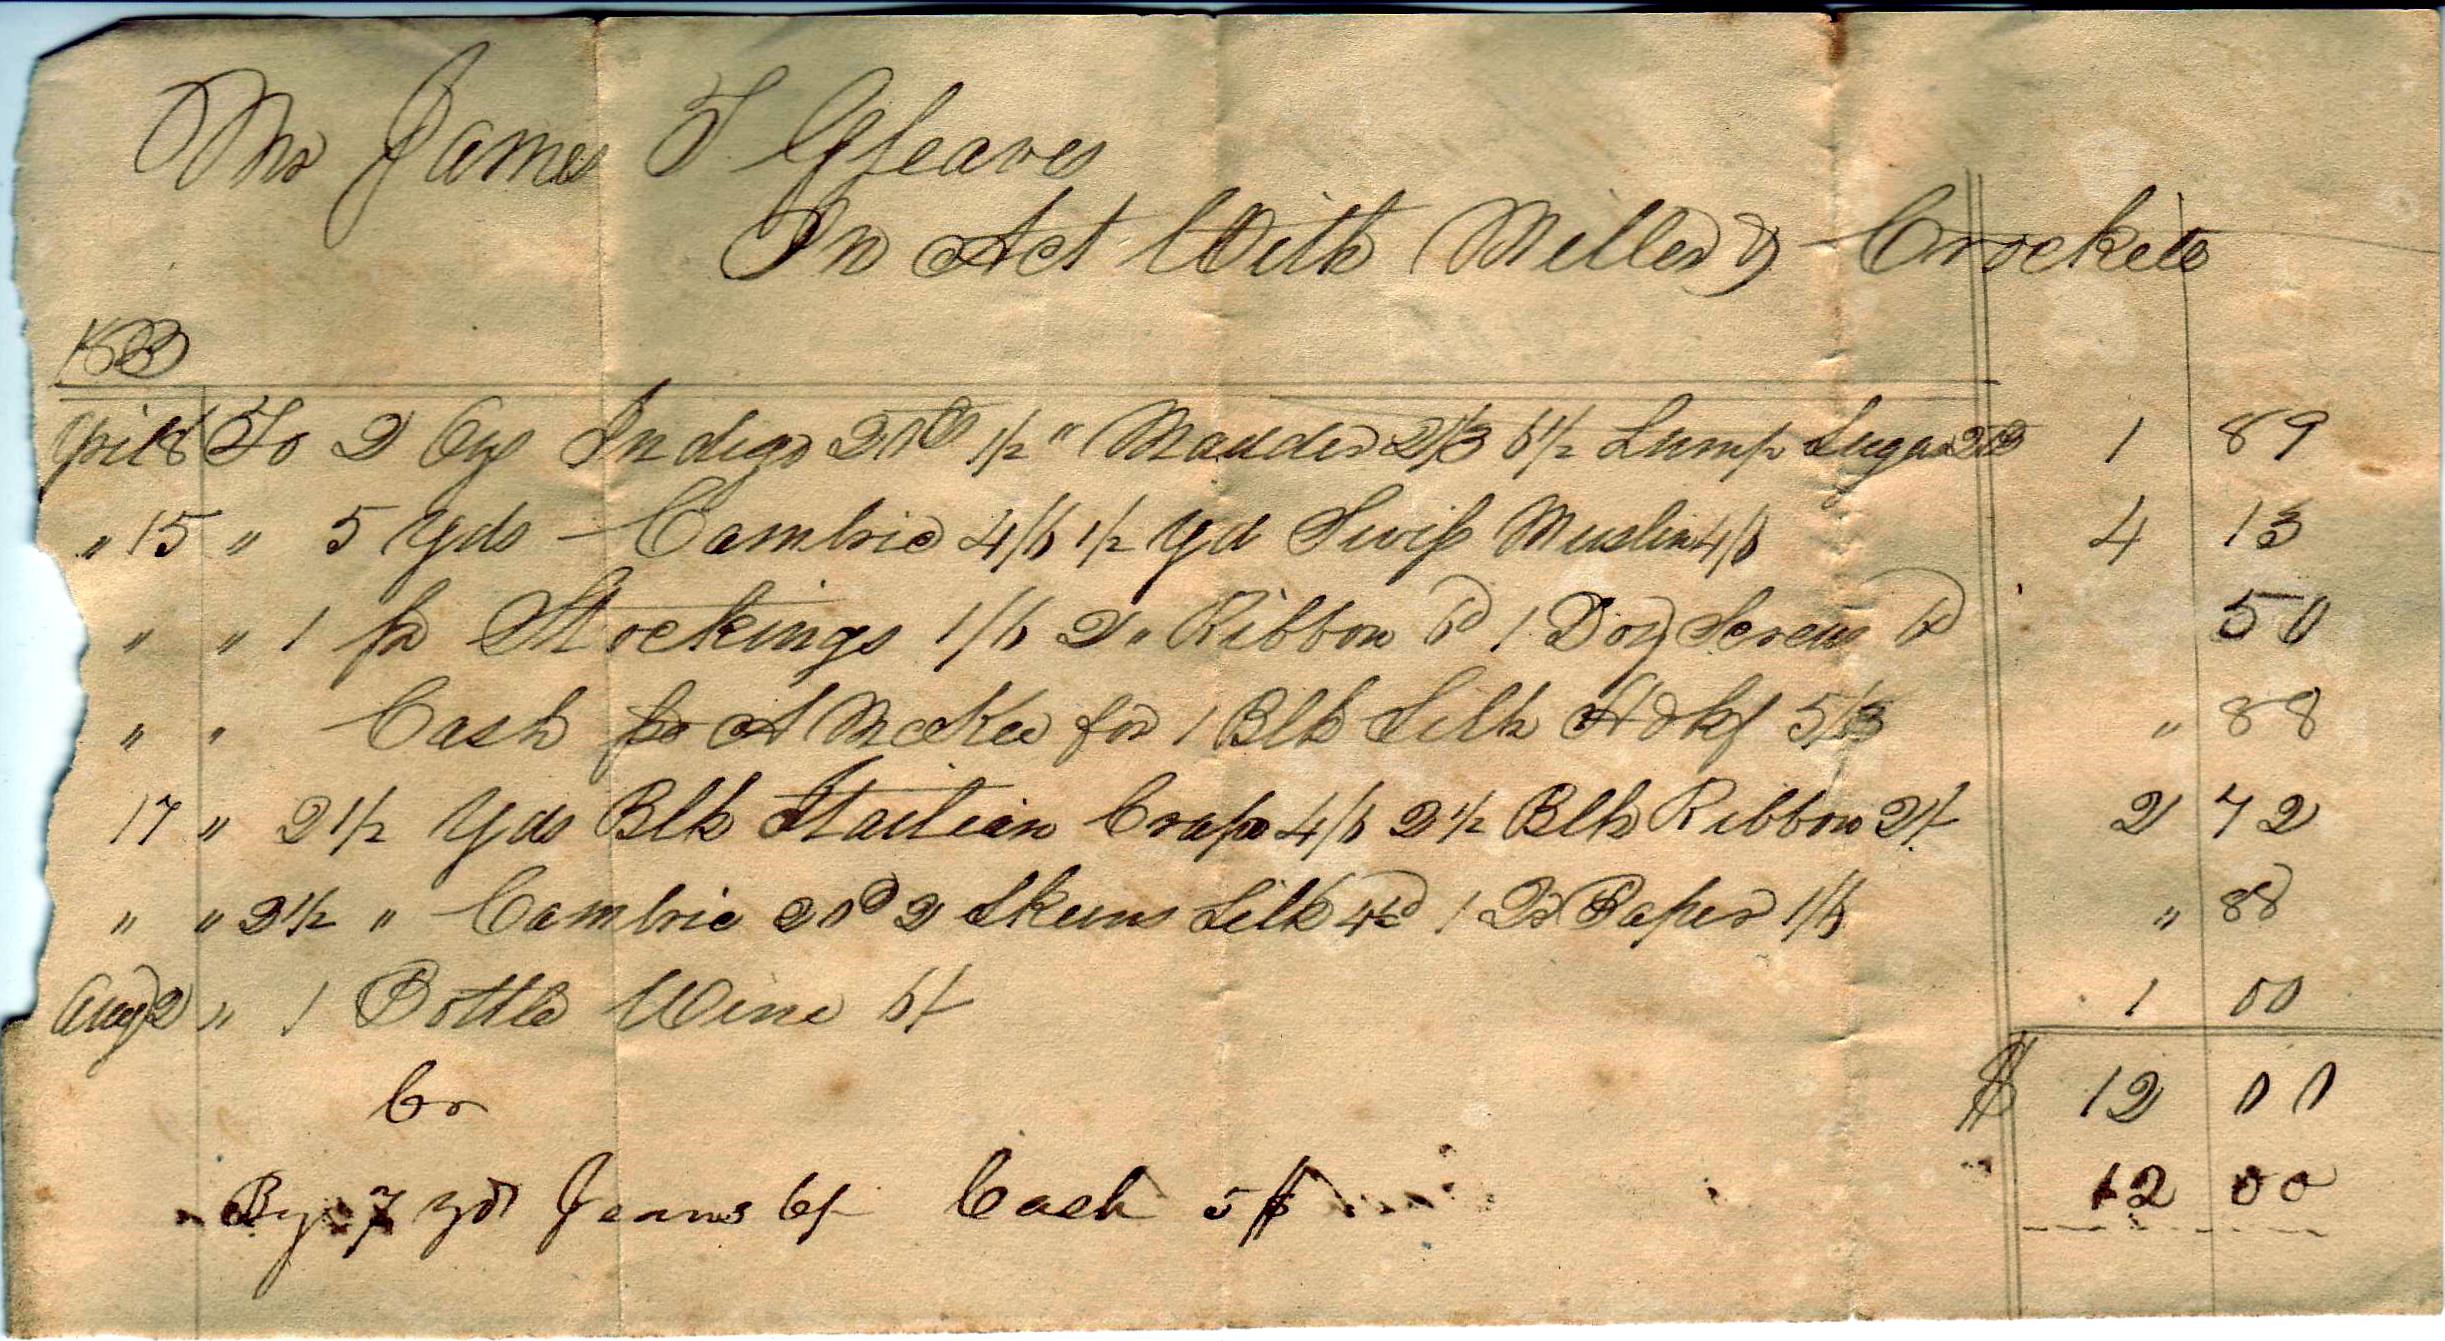 Mr James T Gleaves
In Act With Miller & Crockett
1833
pril 8 To 2 Oz Indigo 20d 1/2 " Madder 2/3 6 1/2 Lump Sugar 1 89
" 15 " 5 Yds Cambric 4/6 1/2 Yd Swiss Muslin 4/6 4 13
" " 1 pr Stockings 1/6 2 " Ribbon 1 Doz Screws 50
" " Cash A McKee for 1 Blk Silk Hdkf 5/3 " 88
17 " 2 1/2 Yds Blk Itailian Crape 4/6 2 1/2 Blk Ribbon 2/ 2 72
" " 2 1/2 " Cambric 20d 2 Skeins Silk 1 Qr Paper 1/6 " 88
Aug 2 " 1 Bottle Wine 6/ 1 00
$ 12 00
Cr
By 7 yds Jeans 6/ Cash 5$ 12 00